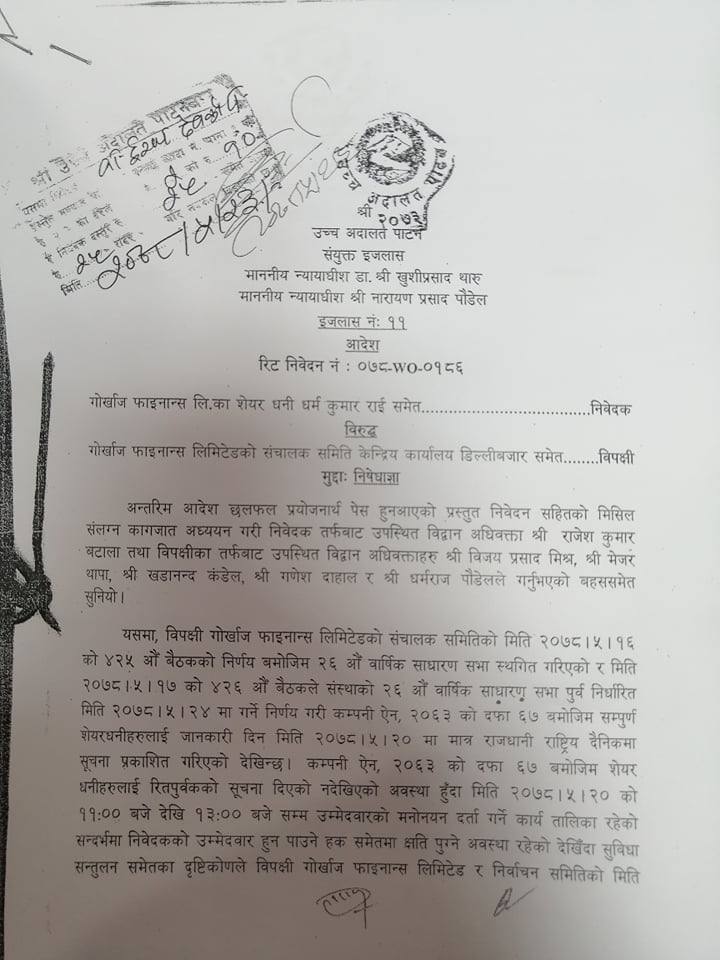 श्री उच्च अदालत पाटनबाट
१०
मिति
उच्च अदालत पाटन
२०७३
श्री
उच्च अदालत पाटन
संयुक्त इजलास
माननीय न्यायाधीश डा. श्री खुशीप्रसाद थारु
माननीय न्यायाधीश श्री नारायण प्रसाद पौडेल
इजलास नं: ११
आदेश
रिट निवेदन नं : ०७८-WO-०१८६
गोर्खाज फाइनान्स लि.का शेयर धनी धर्म कुमार राई समेत......................................निवेदक
विरुद्ध
गोर्खाज फाइनान्स लिमिटेडको संचालक समिति केन्द्रिय कार्यालय डिल्लीबजार समेत........विपक्षी
मुद्दाः निषेधाज्ञा
अन्तरिम आदेश छलफल प्रयोजनार्थ पेस हुनआएको प्रस्तुत निवेदन सहितको मिसिल
संलग्न कागजात अध्ययन गरी निवेदक तर्फबाट उपस्थित विद्वान अधिवक्ता श्री राजेश कुमार
बटाला तथा विपक्षीका तर्फबाट उपस्थित विद्वान अधिवक्ताहरु श्री विजय प्रसाद मिश्र, श्री मेजर
थापा, श्री खडानन्द कंडेल, श्री गणेश दाहाल र श्री धर्मराज पौडेलले गर्नुभएको बहससमेत
सुनियो।
यसमा, विपक्षी गोर्खाज फाइनान्स लिमिटेडको संचालक समितिको मिति २०७८।५।१६
को ४२५ औं बैठकको निर्णय बमोजिम २६ औं वार्षिक साधारण सभा स्थगित गरिएको र मिति
२०७८।५।१७ को ४२६ औं बैठकले संस्थाको २६ औं वार्षिक साधारण सभा पुर्व निर्धारित
मिति २०७८।५।२४ मा गर्ने निर्णय गरी कम्पनी ऐन, २०६३ को दफा ६७ बमोजिम सम्पुर्ण
शेयरधनीहरुलाई जानकारी दिन मिति २०७८।५।२० मा मात्र राजधानी राष्ट्रिय दैनिकमा
सूचना प्रकाशित गरिएको देखिन्छ। कम्पनी ऐन, २०६३ को दफा ६७ बमोजिम शेयर
धनीहरुलाई रितपुर्वकको सूचना दिएको नदेखिएको अवस्था हुँदा मिति २०७८।५।२० को
११:०० बजे देखि १३:०० बजे सम्म उम्मेदवारको मनोनयन दर्ता गर्ने कार्य तालिका रहेको
सन्दर्भमा निवेदकको उम्मेदवार हुन पाउने हक समेतमा क्षति पुग्ने अवस्था रहेको देखिँदा सुविधा
सन्तुलन समेतका दृष्टिकोणले विपक्षी गोर्खाज फाइनान्स लिमिटेड र निर्वाचन समितिको मिति